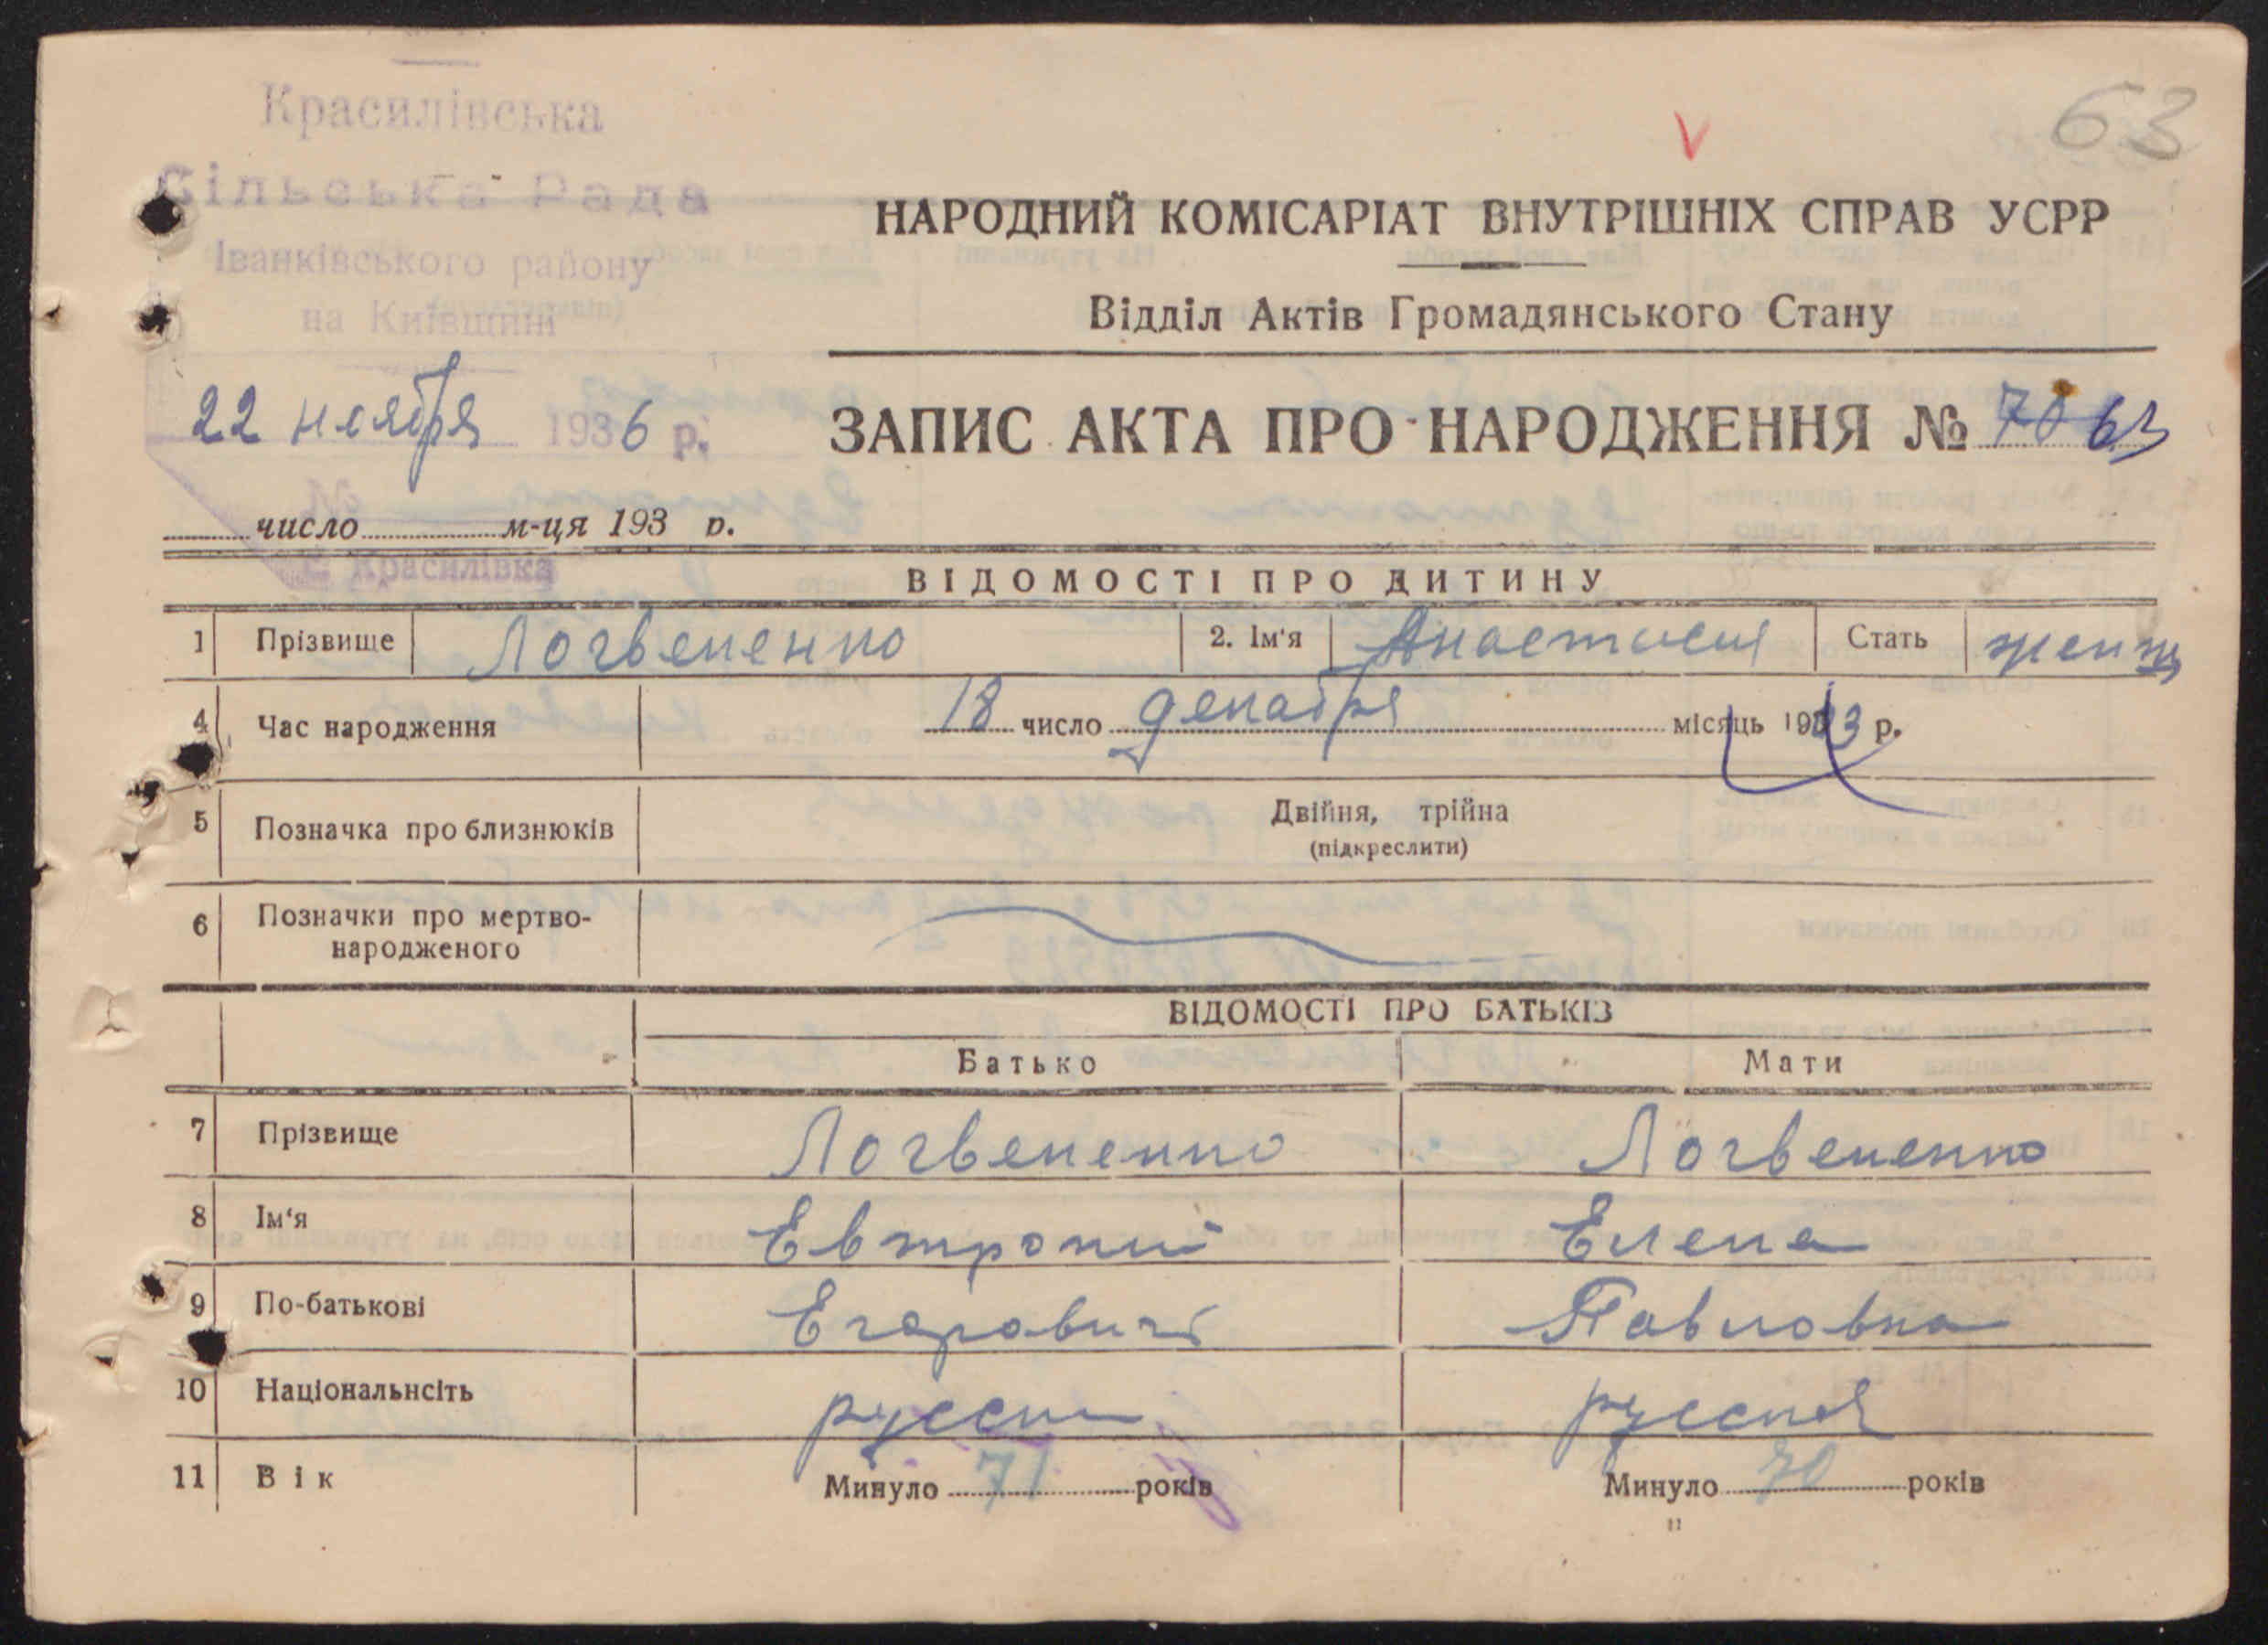 63
Красилівська
Сільська Рада
Іванківського району
на Київщині
22 ноября 1936 р.
с. Красилівка
V
НАРОДНИЙ КОМІСАРІАТ ВНУТРІШНІХ СПРАВ УСРР
Відділ Актів Громадянського Стану
ЗАПИС АКТА ПРО НАРОДЖЕННЯ № 70 63
число м-ця 193 р.
ВІДОМОСТІ ПРО ДИТИНУ
1 Прізвище Логвененко 2. Ім'я Анастасия Стать женщ
4 Час народження 18 число декабря місяць 1903 р.
5 Позначка про близнюків Двійня, трійна
(підкреслити)
6 Позначки про мертво-
народженого
ВІДОМОСТІ ПРО БАТЬКІВ
Батько Мати
7 Прізвище Логвененко Логвененко
8 Ім'я Евтропий Елена
9 По-батькові Егорович Павловна
10 Національнсіть русски русская
11 Вік Минуло 71 років Минуло 70 років